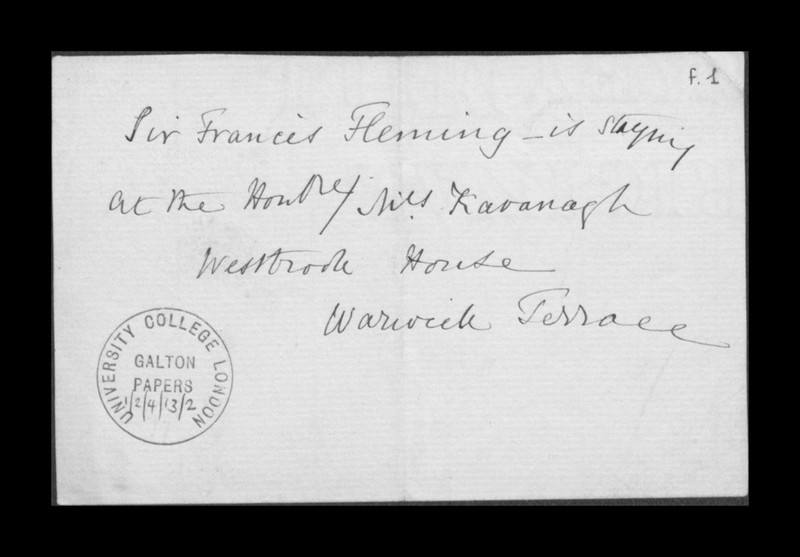 f. 1
Sir Francis Fleming - is staying
at the Honble Mrs Kavanagh
Westbrook House
Warwick Terrace
UNIVERSITY COLLEGE LONDON
GALTON
PAPERS
1/2/4/13/2